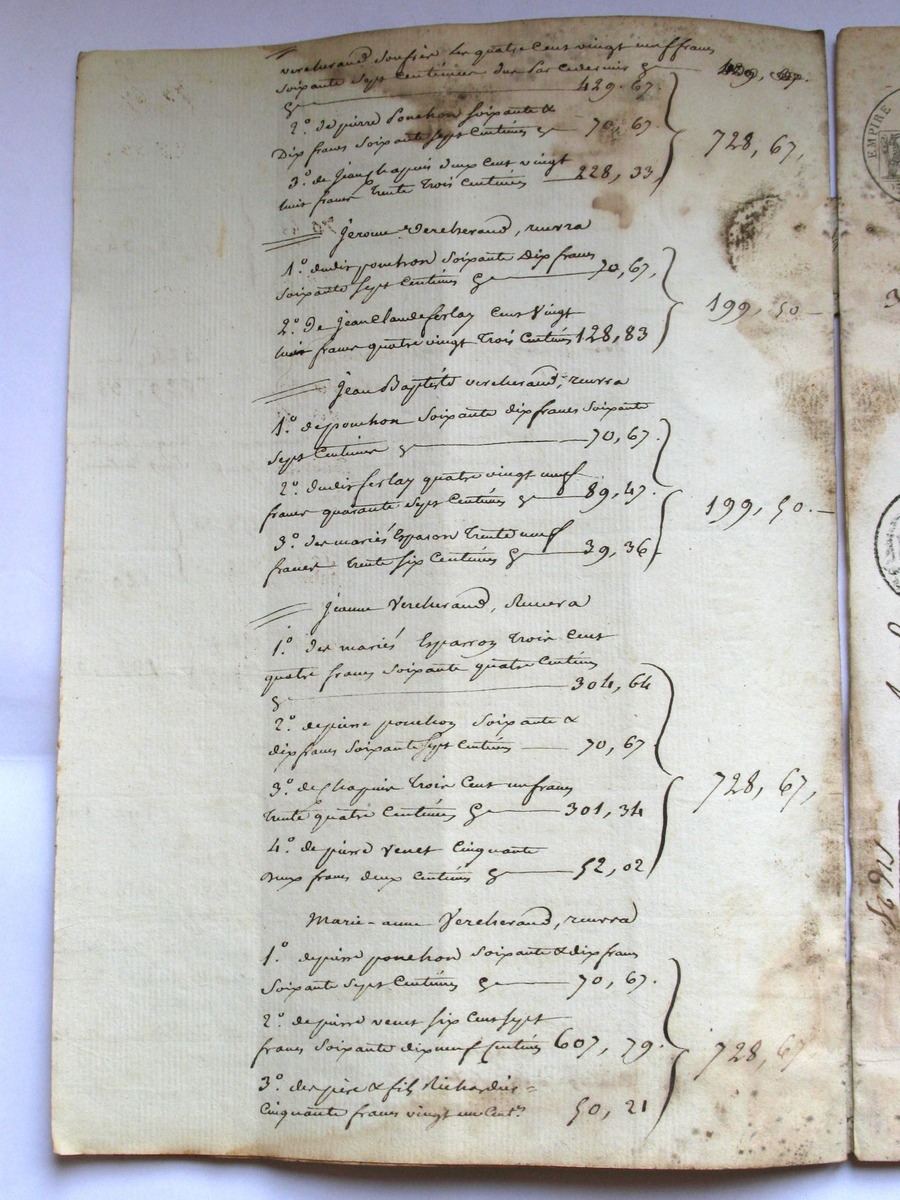 vercherand son frère les quatre cent vingt neuf francs
soixante sept centimes dus par ce dernier 429, 67.
429. 67.
2.º de pierre Ponchon soixante &
Dix francs soixante sept centimes 70, 67
3.º de Jean Chapuis deux cent vingt
huit francs trente trois centimes 228, 33
728, 67,
Jerome Vercherand, recevra
1.º dudit ponchon soixante Dix francs
soixante sept centimes 70, 67,
2.º De Jean Claude ferlay Cent Vingt
huit francs quatre vingt trois centimes 128, 83
199, 50
Jean Baptiste vercherand, recevra
1.º de ponchon soixante dix francs soixante
sept Centimes 70, 67
2.º dudit ferlay quatre vingt neuf
francs quarante sept centimes 89, 47.
3.º des mariés Esparon trente neuf
francs trente six centimes 39, 36
199, 50.
Jeanne Vercherand, Recevra
1.º des mariés Esparron trois cent
quatre francs soixante quatre centimes
304, 64
2.º de pierre ponchon soixante &
dix francs soixante sept centimes 70, 67
3.º de Chapuis trois Cent un francs
trente quatre centimes 301, 34
4.º de pierre venet Cinquante
deux francs deux centimes 52, 02
728, 67,
Marie-anne Vercherand, recevra
1.º de pierre ponchon soixante & dix francs
soixante sept centimes 70, 67.
2.º de pierre venet six cent sept
francs soixante dix neuf centimes 607, 79.
3.º des père & fils Richard
Cinquante francs vingt un cent.s 50, 21
728, 67
EMPIRE